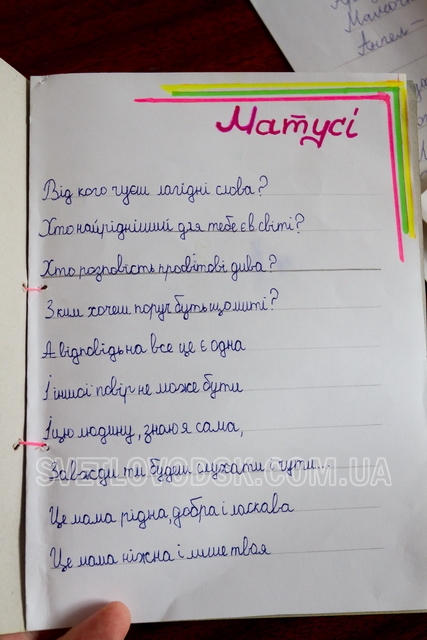 Малоч
Ангел –
Матусі
Від кого чуєш лагідні слова?
Хто найрідніший для тебе є в світі?
Хто розповість про світові дива?
З ким хочеш поруч буть щомиті?
А відповідь на все це є одна
І іншої повір не може бути
І цю людину, знаю я сама,
Завжди ти будеш слухати і чути...
SVETLOVODSK.COM.UA
Це мама рідна, добра і ласкава
Це мама ніжна і лише твоя